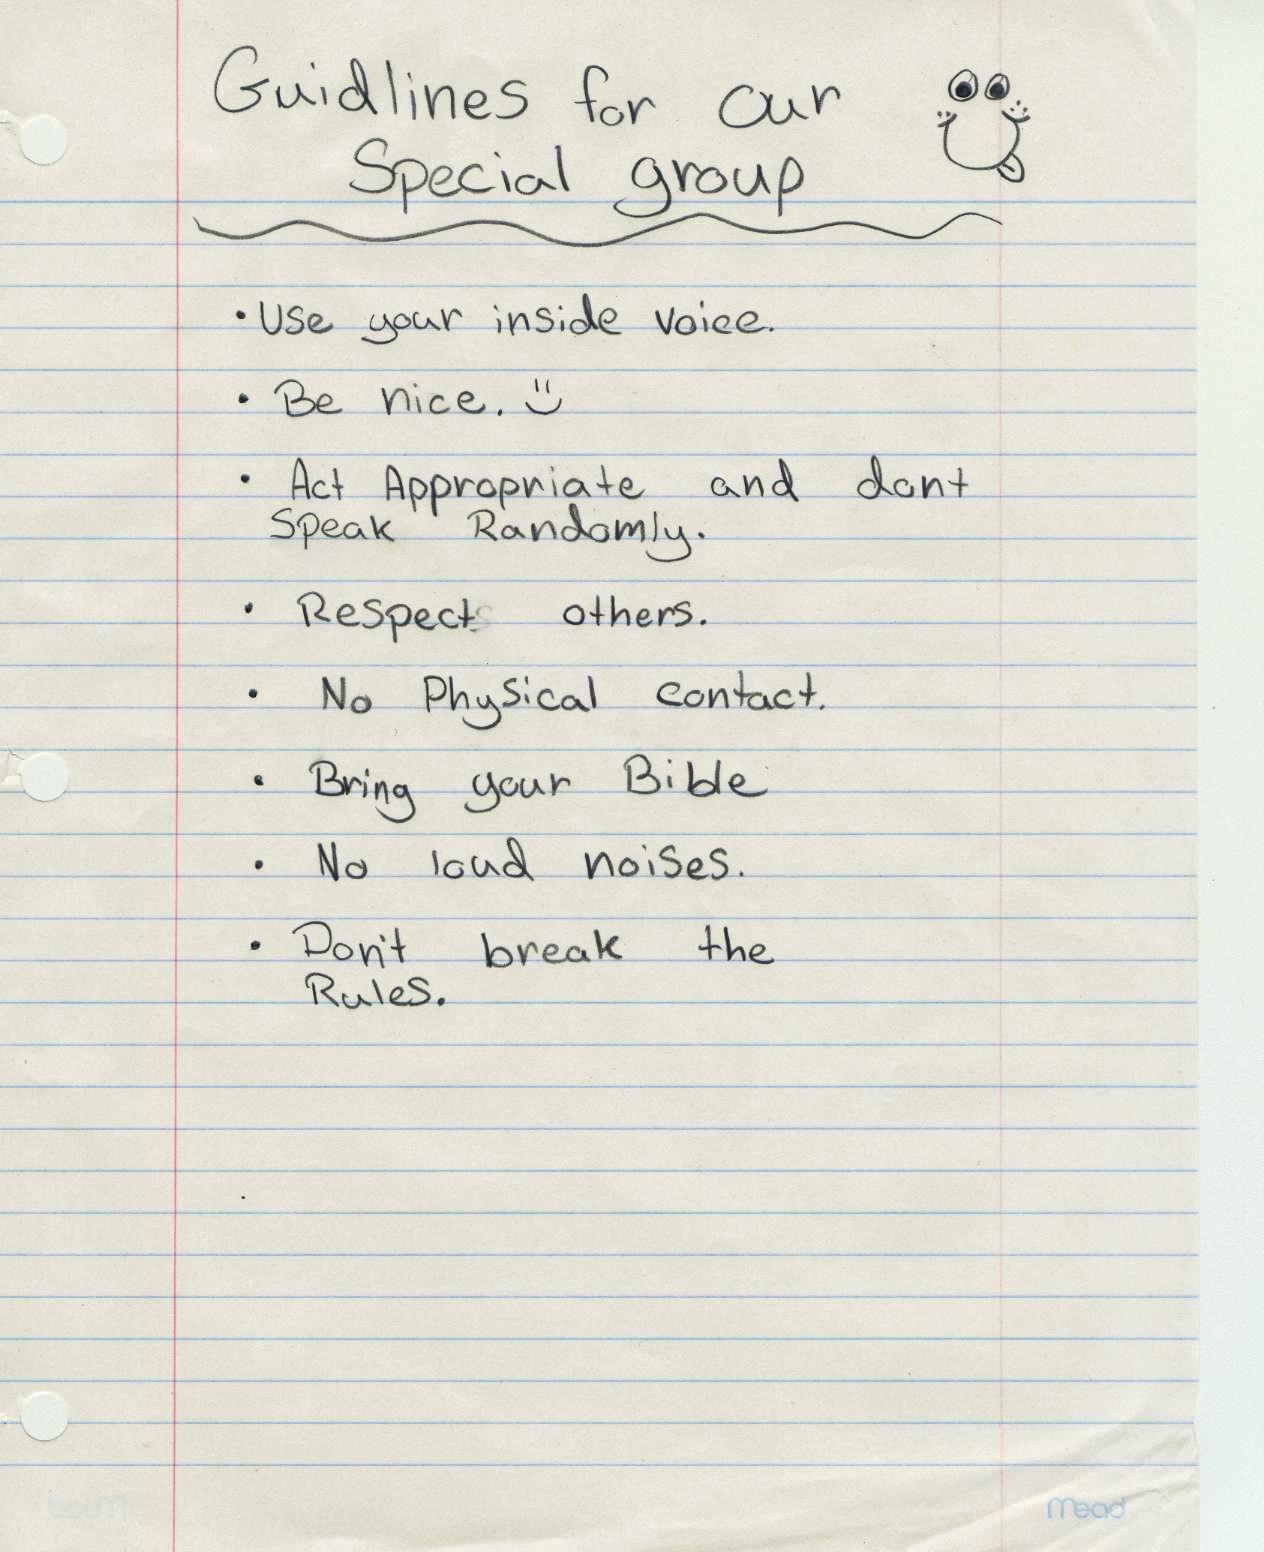 Guidlines for our
Special group
• Use your inside voice.
• Be nice.
• Act Appropriate and dont
Speak Randomly.
• Respect others.
• No Physical contact.
• Bring your Bible
• No loud noises.
• Don't break the
Rules.
Mead